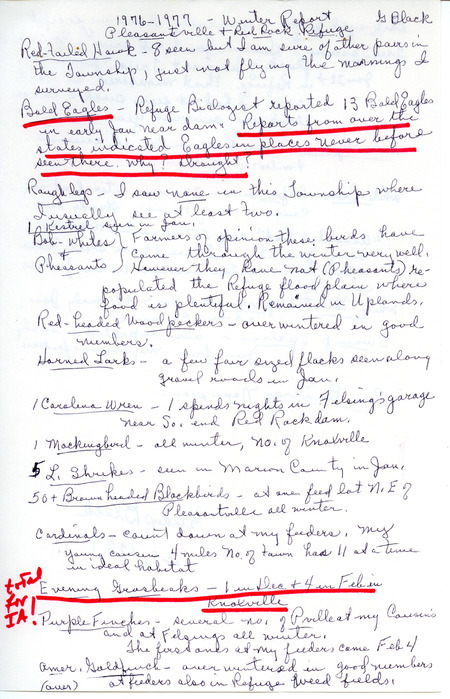 1976-1977 - Winter Report G Black
Pleasantville & Red Rock Refuge
Red-tailed Hawk - 8 seen but I am sure of other pairs in
the Township, just not flying the mornings I
surveyed.
Bald Eagles - Refuge Biologist reported 13 Bald Eagles
in early Jan near dam. Reports from over the
states indicated Eagles in places never before
seen there. Why? Drought?
Rough legs - I saw none in this Township where
I usually see at least two.
1 Kestrel seen in Jan.
Bob-whites } Farmers of opinion these birds have
& come through the winter very well.
Pheasants } However they have not (Pheasants) re-
populated the Refuge flood plain where
food is plentiful. Remained in Uplands.
Red-headed Woodpeckers - overwintered in good
numbers.
Horned Larks - a few fair sized flocks seen along
gravel roads in Jan.
1 Carolina Wren - 1 spends nights in Felsing's garage
near So. end Red Rock dam.
1 Mockingbird - all winter, No. of Knoxville
5 L. Shrikes - seen in Marion County in Jan.
50+ Brown headed Blackbirds - at one feed lot N.E of
Pleasantville all winter.
Cardinals - count down at my feeders. My
young cousin 4 miles No. of town has 11 at a time
in ideal habitat
Evening Grosbeaks - 1 in Dec & 4 in Feb in
Knoxville
total
for
IA!
Purple Finches - several no. of Pville at my Cousins
and at Felsings all winter.
The first ones at my feeders came Feb 4
Amer. Goldfinch - over wintered in good numbers
(over) at feeders also in Refuge weed fields.